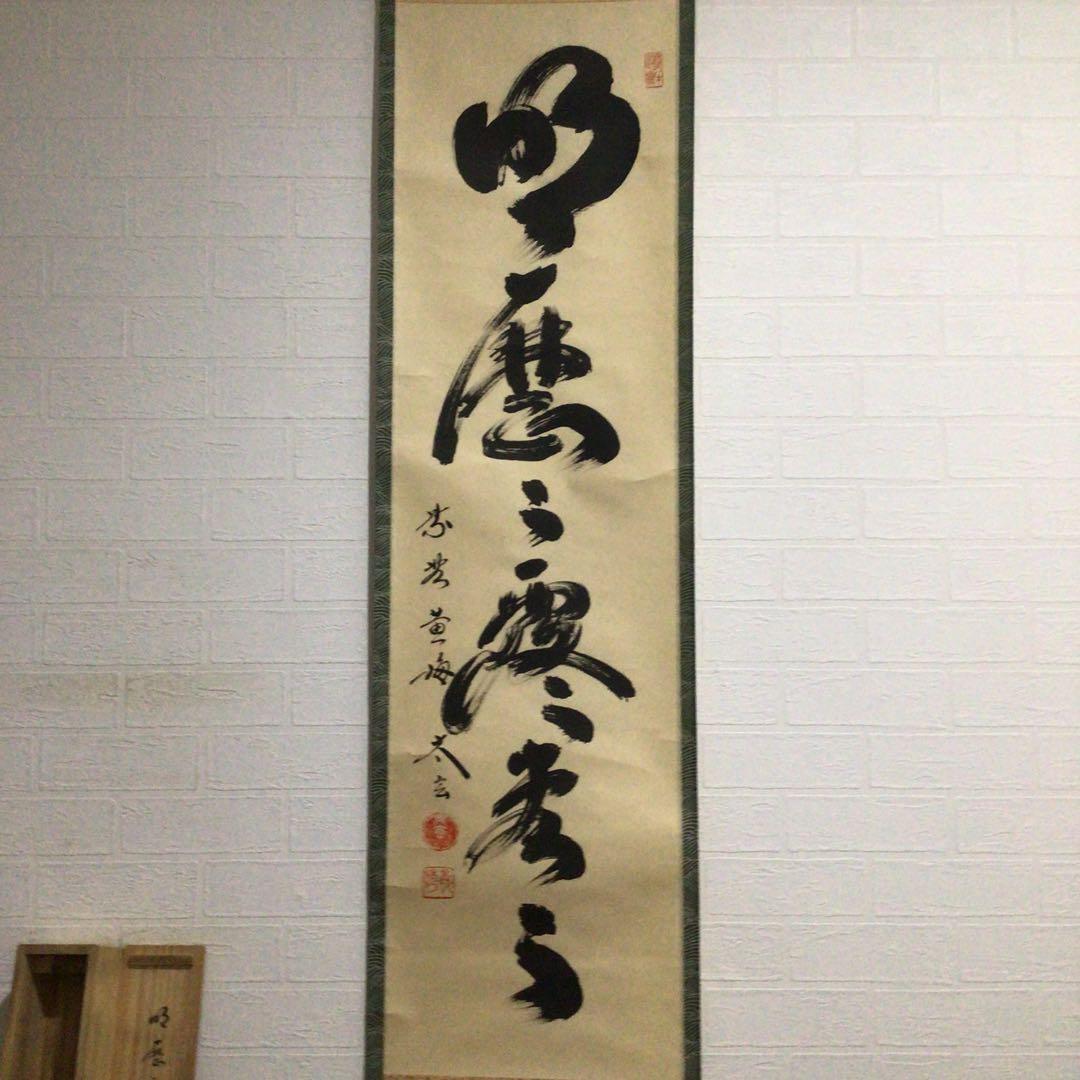 明歴々露堂々
紫野黄梅 太玄
明歴